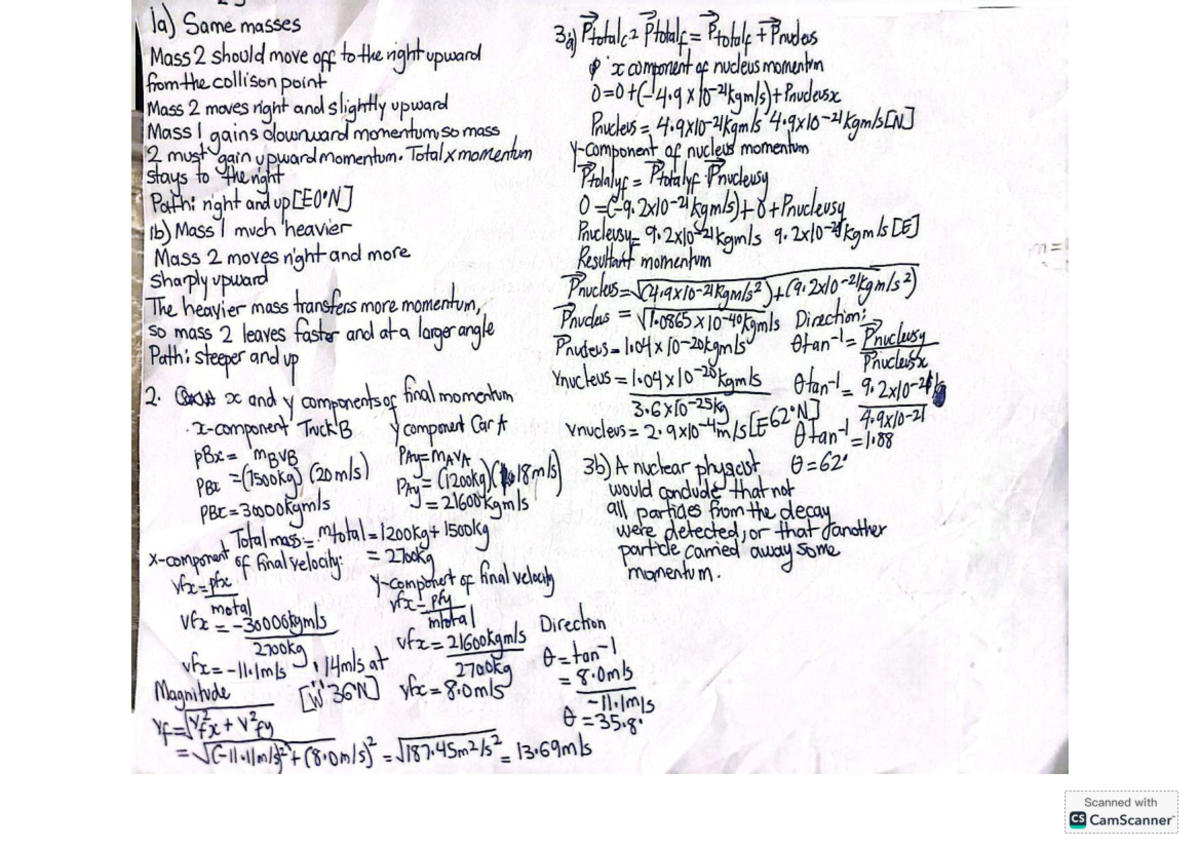 1a) Same masses
Mass 2 should move off to the right upward
from the collison point
Mass 2 moves right and slightly upward
Mass 1 gains downward momentum, so mass
2 must gain upward momentum. Total x momentum
stays to the right
Path: right and up [E0°N]
1b) Mass 1 much heavier
Mass 2 moves right and more
sharply upward
The heavier mass transfers more momentum,
so mass 2 leaves faster and at a larger angle
Path: steeper and up
2. x and y components of final momentum
x-component Truck B
pBx = mBvB
pBx = (1500kg) (20m/s)
pBx = 30000kgm/s
y component Car A
PAy = mAVA
PAy = (1200kg)(18m/s)
= 21600kgm/s
Total mass = mtotal = 1200kg + 1500kg
= 2700kg
x-component of final velocity:
vfx = pfx
motal
vfx = -30000kgm/s
2700kg
vfx = -11.1m/s
14m/s at
[W 36°N]
y-component of final velocity
vfx = pfy
mtotal
vfx = 21600kgm/s
2700kg
vfx = 8.0m/s
Direction
θ = tan-1
= 8.0m/s
-11.1m/s
θ = 35.8°
Magnitude
vf = √v²fx + v²fy
= √(-11.11m/s)² + (8.0m/s)² = √187.45m2/s² = 13.69m/s
3a) Ptotalc = Ptotalf = Ptotalf + Pnucleus
x component of nucleus momentum
0 = 0 + (-4.9 x 10-21kgm/s) + Pnucleusx
Pnucleus = 4.9x10-21kgm/s 4.9x10-21kgm/s [N]
y-component of nucleus momentum
Ptotalyf = Ptotalyf Pnucleusy
0 = (-9.2x10-21kgm/s) + 0 + Pnucleusy
Pnucleusy = 9.2x10-21kgm/s 9.2x10-21kgm/s [E]
Resultant momentum
Pnucleus = √(4.9x10-21kgm/s²) + (9.2x10-21kgm/s²)
Pnucleus = √1.0865 x 10-40kgm/s
Pnucleus = 1.04 x 10-20kgm/s
Vnucleus = 1.04 x 10-20kgm/s
3.6x10-25kg
Vnucleus = 2.9x10-4m/s [E 62°N]
Direction:
θtan-1 = Pnucleusy
Pnucleusx
θtan-1 = 9.2x10-21
4.9x10-21
θtan-1 = 1.88
θ = 62°
3b) A nuclear physicist
would conclude that not
all particles from the decay
were detected, or that another
particle carried away some
momentum.
m=
Scanned with
CS CamScanner